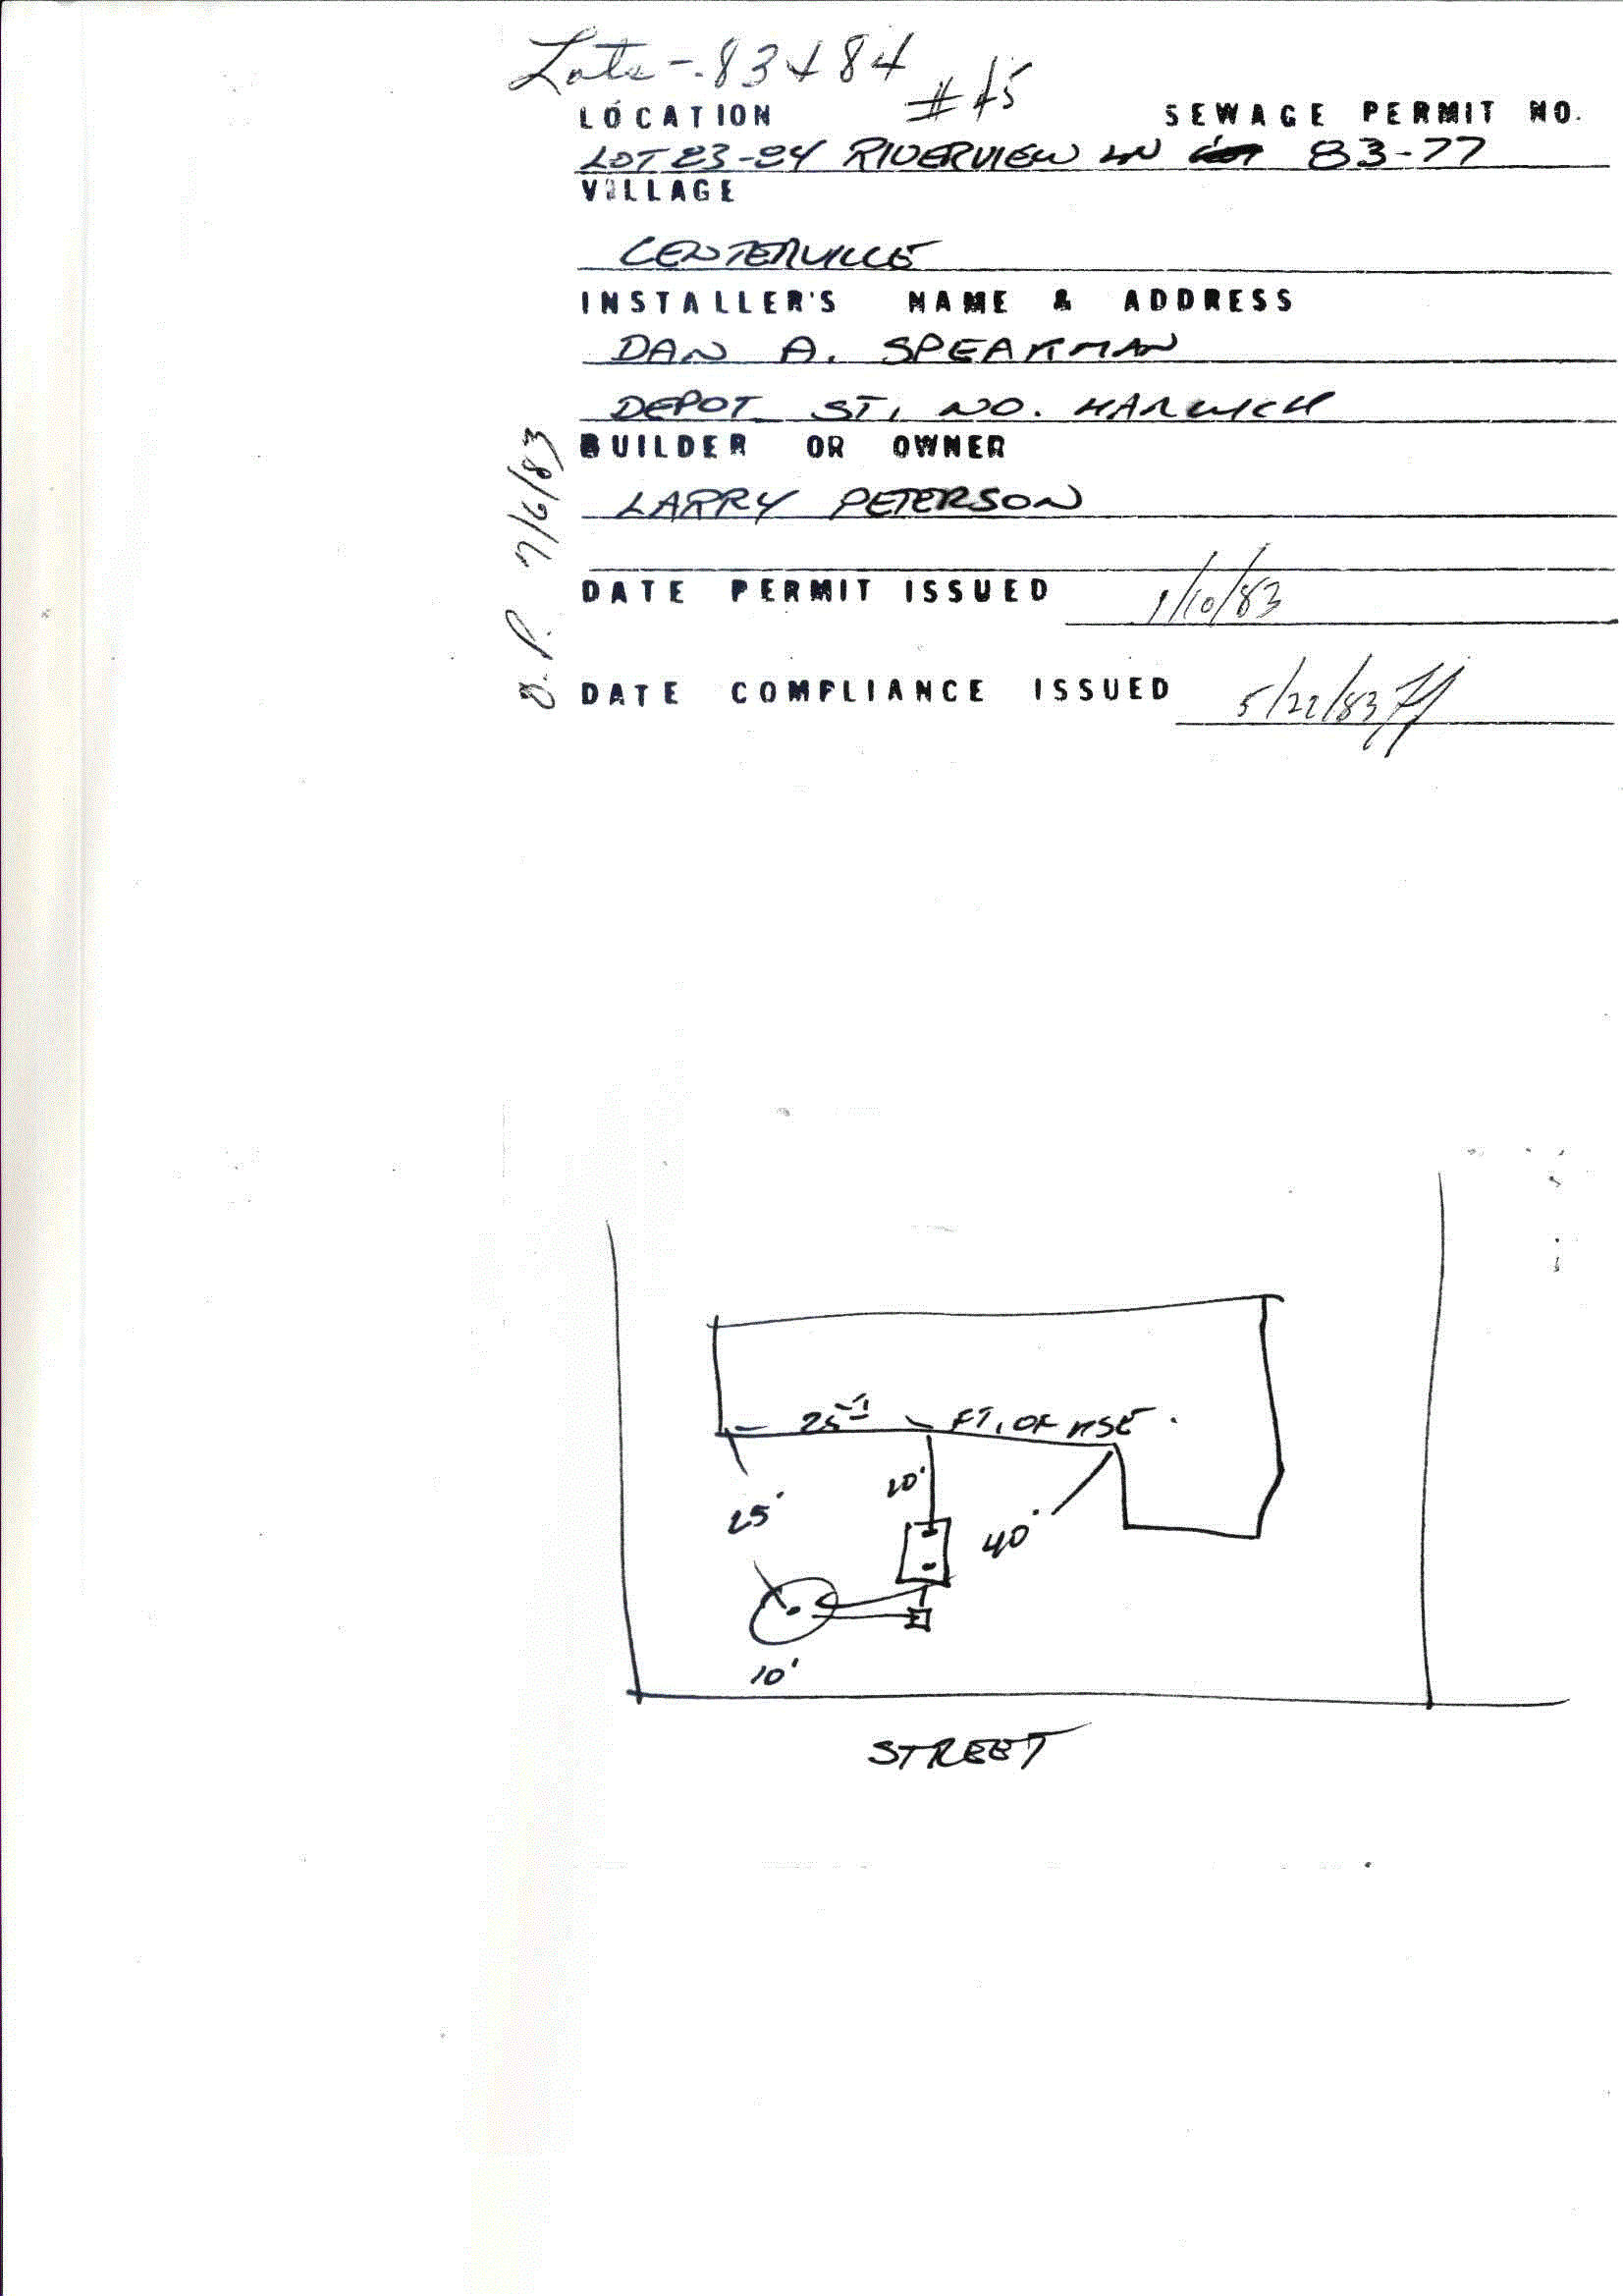 Lots - 83 & 84 # 45
LOCATION SEWAGE PERMIT NO.
LOT 83-84 RIVERVIEW LN 83-77
VILLAGE
CENTERVILLE
INSTALLER'S NAME & ADDRESS
DAN A. SPEAKMAN
DEPOT ST, NO. HARWICH
BUILDER OR OWNER
LARRY PETERSON
DATE PERMIT ISSUED 1/10/83
DATE COMPLIANCE ISSUED 5/22/83
O.P. 7/6/83
25' FT, OF HSE.
25' 20' 40'
10'
STREET